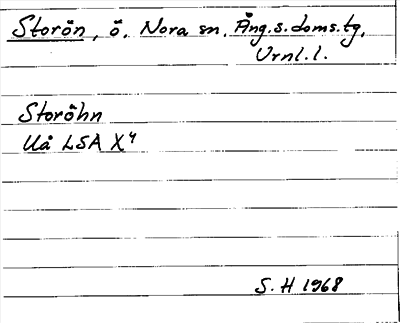 Storön, ö. Nora sn. Ång.s.doms.tg.
Vrnl.l.
Storöhn
Uå LSA X4
S. H 1968